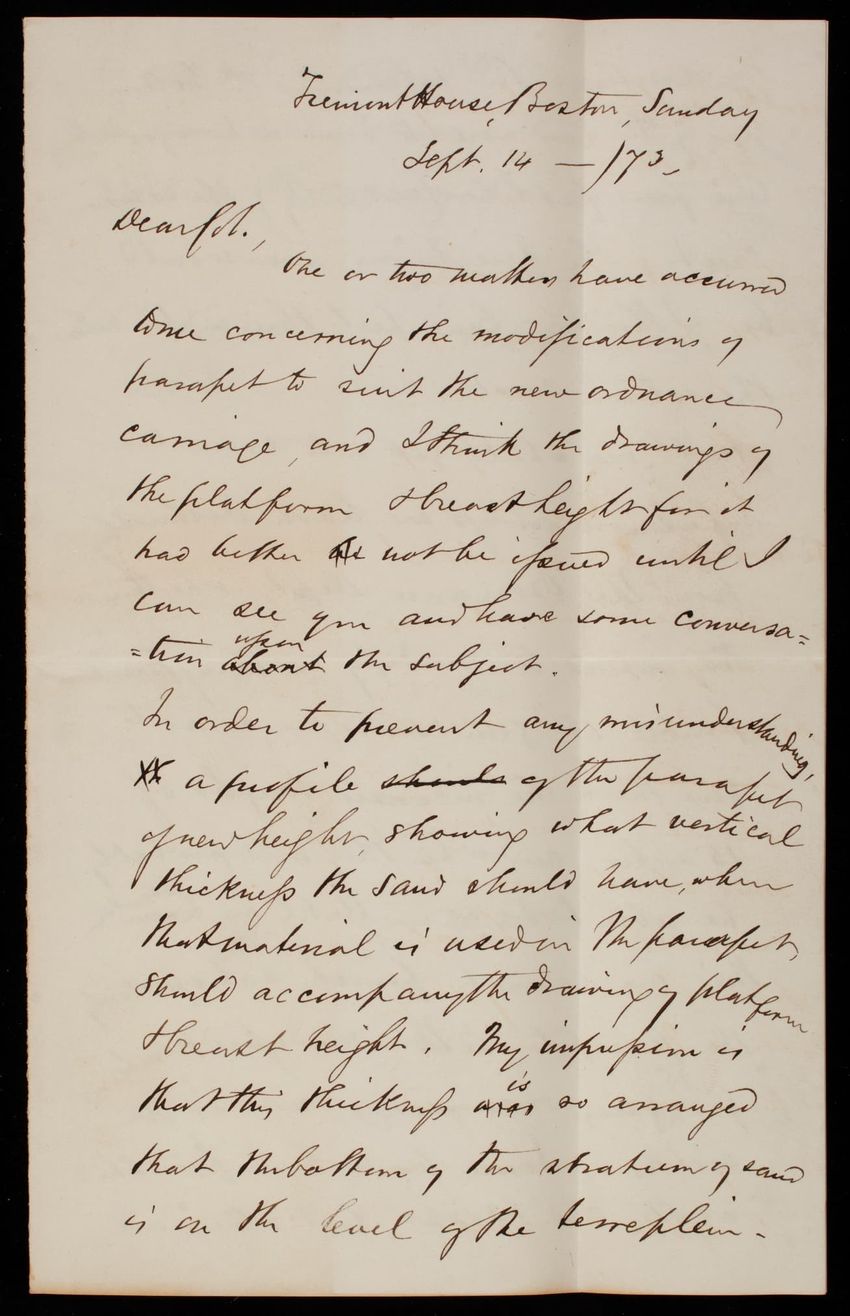 Tremont House, Boston, Sunday
Sept. 14 — /73.
Dear Col.,
One or two matters have occurred
to me concerning the modifications of
parapet to suit the new ordnance
carriage, and I think the drawings of
the platform & breast height for it
had better not be issued until I
can see you and have some conversa=
=tion upon about the subject.
In order to prevent any misunderstanding,
a profile should of the parapet
of new height, showing what vertical
thickness the sand should have, when
that material is used in the parapet,
should accompany the drawing of platform
& breast height. My impression is
that this thickness was is so arranged
that the bottom of the stratum of sand
is on the level of the terreplein.